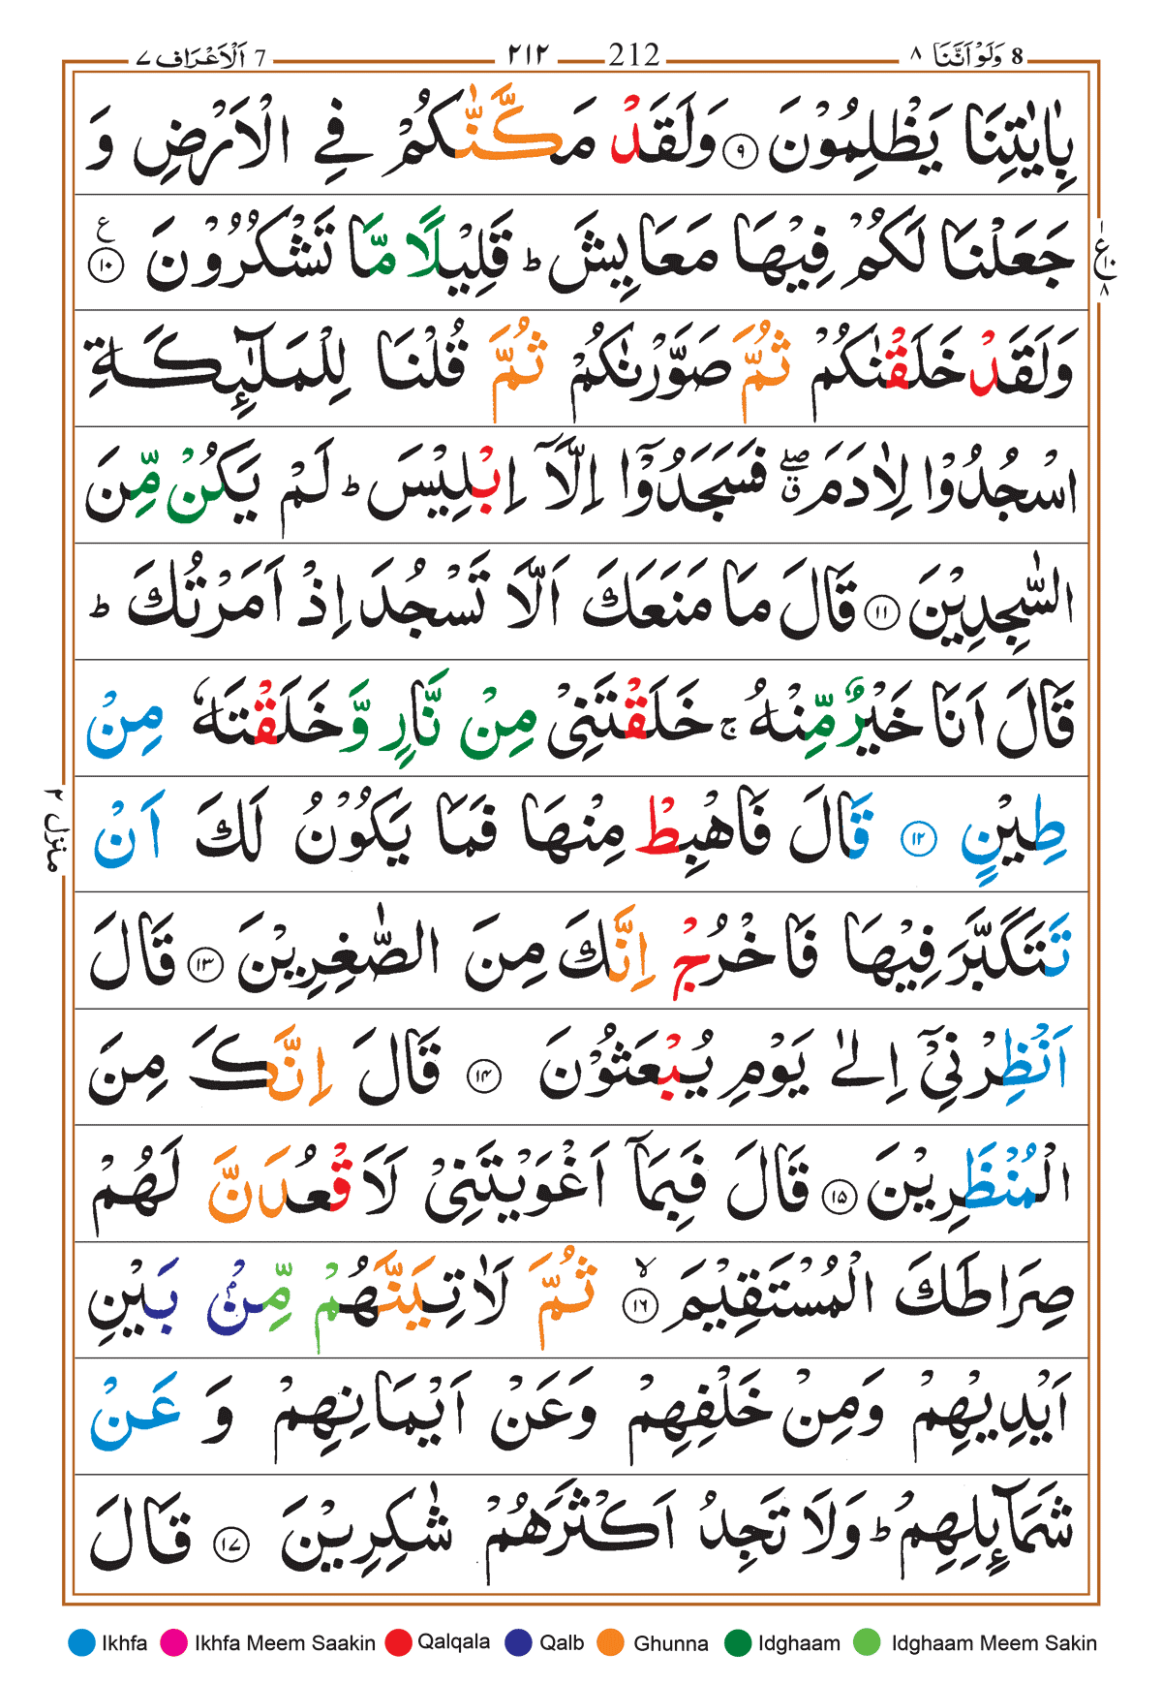 7 اَلْاَعْرَاف ٧
٢١٢ 212
8 وَلَوْ اَنَّنَا ٨
بِاٰيٰتِنَا يَظْلِمُوْنَ ٩ وَلَقَدْ مَكَّنّٰكُمْ فِي الْاَرْضِ وَ
جَعَلْنَا لَكُمْ فِيْهَا مَعَايِشَ ؕ قَلِيْلًا مَّا تَشْكُرُوْنَ ١٠ ع
وَلَقَدْ خَلَقْنٰكُمْ ثُمَّ صَوَّرْنٰكُمْ ثُمَّ قُلْنَا لِلْمَلٰٓئِكَةِ
اسْجُدُوْا لِاٰدَمَ ۖۗ فَسَجَدُوْۤا اِلَّاۤ اِبْلِيْسَ ؕ لَمْ يَكُنْ مِّنَ
السّٰجِدِيْنَ ١١ قَالَ مَا مَنَعَكَ اَلَّا تَسْجُدَ اِذْ اَمَرْتُكَ ؕ
قَالَ اَنَا خَيْرٌ مِّنْهُ ۚ خَلَقْتَنِيْ مِنْ نَّارٍ وَّخَلَقْتَهٗ مِنْ
طِيْنٍ ١٢ قَالَ فَاهْبِطْ مِنْهَا فَمَا يَكُوْنُ لَكَ اَنْ
تَتَكَبَّرَ فِيْهَا فَاخْرُجْ اِنَّكَ مِنَ الصّٰغِرِيْنَ ١٣ قَالَ
اَنْظِرْنِيْۤ اِلٰى يَوْمِ يُبْعَثُوْنَ ١٤ قَالَ اِنَّكَ مِنَ
الْمُنْظَرِيْنَ ١٥ قَالَ فَبِمَاۤ اَغْوَيْتَنِيْ لَاَقْعُدَنَّ لَهُمْ
صِرَاطَكَ الْمُسْتَقِيْمَ ۙ ١٦ ثُمَّ لَاٰتِيَنَّهُمْ مِّنْۢ بَيْنِ
اَيْدِيْهِمْ وَمِنْ خَلْفِهِمْ وَعَنْ اَيْمَانِهِمْ وَ عَنْ
شَمَآئِلِهِمْ ؕ وَلَا تَجِدُ اَكْثَرَهُمْ شٰكِرِيْنَ ١٧ قَالَ
ع ١٠ ٨
منزل ٢
Ikhfa Ikhfa Meem Saakin Qalqala Qalb Ghunna Idghaam Idghaam Meem Sakin